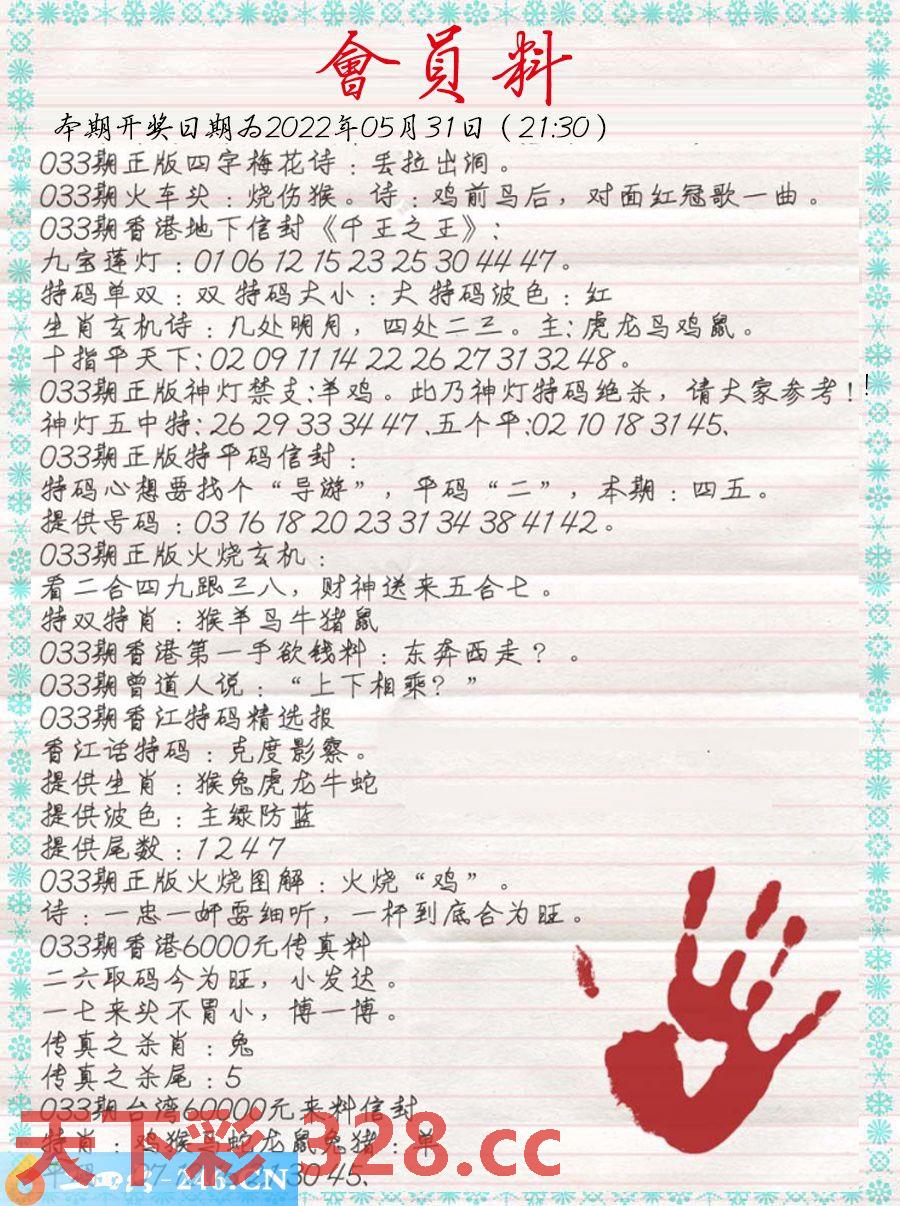 會員料
本期开奖日期为2022年05月31日（21:30）
033期正版四字梅花诗：丢拉出洞。
033期火车头：烧伤猴。诗：鸡前鸟后，对面红冠歌一曲。
033期香港地下信封《千王之王》：
九宝莲灯：01 06 12 15 23 25 30 44 47。
特码单双：双 特码大小：大 特码波色：红
生肖玄机诗：几处明月，四处二三。主：虎龙马鸡鼠。
十指平天下：02 09 11 14 22 26 27 31 32 48。
033期正版神灯禁支：羊鸡。此乃神灯特码绝杀，请大家参考！
神灯五中特：26 29 33 34 47、五个平：02 10 18 31 45、
033期正版特平码信封：
特码心想要找个“导游”，平码“二”，本期：四五。
提供号码：03 16 18 20 23 31 34 38 41 42。
033期正版火烧玄机：
看二合四九跟三八，财神送来五合七。
特双特肖：猴羊马牛猪鼠
033期香港第一手欲钱料：东奔西走？。
033期曾道人说：“上下相乘？”
033期香江特码精选报
香江话特码：克度影察。
提供生肖：猴兔虎龙牛蛇
提供波色：主绿防蓝
提供尾数：1 2 4 7
033期正版火烧图解：火烧“鸡”。
诗：一忠一奸要细听，一杯到底合为旺。
033期香港6000元传真料
二六取码今为旺，小发达。
一七来头不胃小，博一博。
传真之杀肖：兔
传真之杀尾：5
033期台湾60000元来料信封
特肖：鸡猴马蛇龙鼠兔猪：单
30 45、
天下彩 328.cc
-246.CN